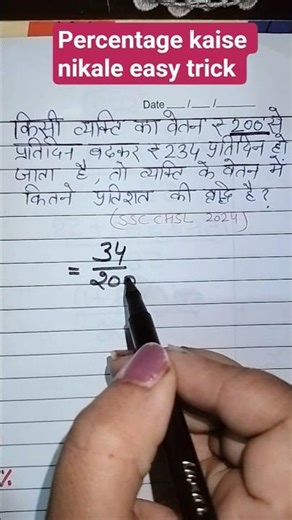 Percentage kaise
nikale easy trick
Date __/__/__
किसी व्यक्ति का वेतन ₹ 200 से
प्रतिदिन बढकर ₹ 234 प्रतिदिन हो
जाता है, तो व्यक्ति के वेतन में
कितने प्रतिशत की वृद्धि है ?
(SSC CHSL 2024)
= 34
200